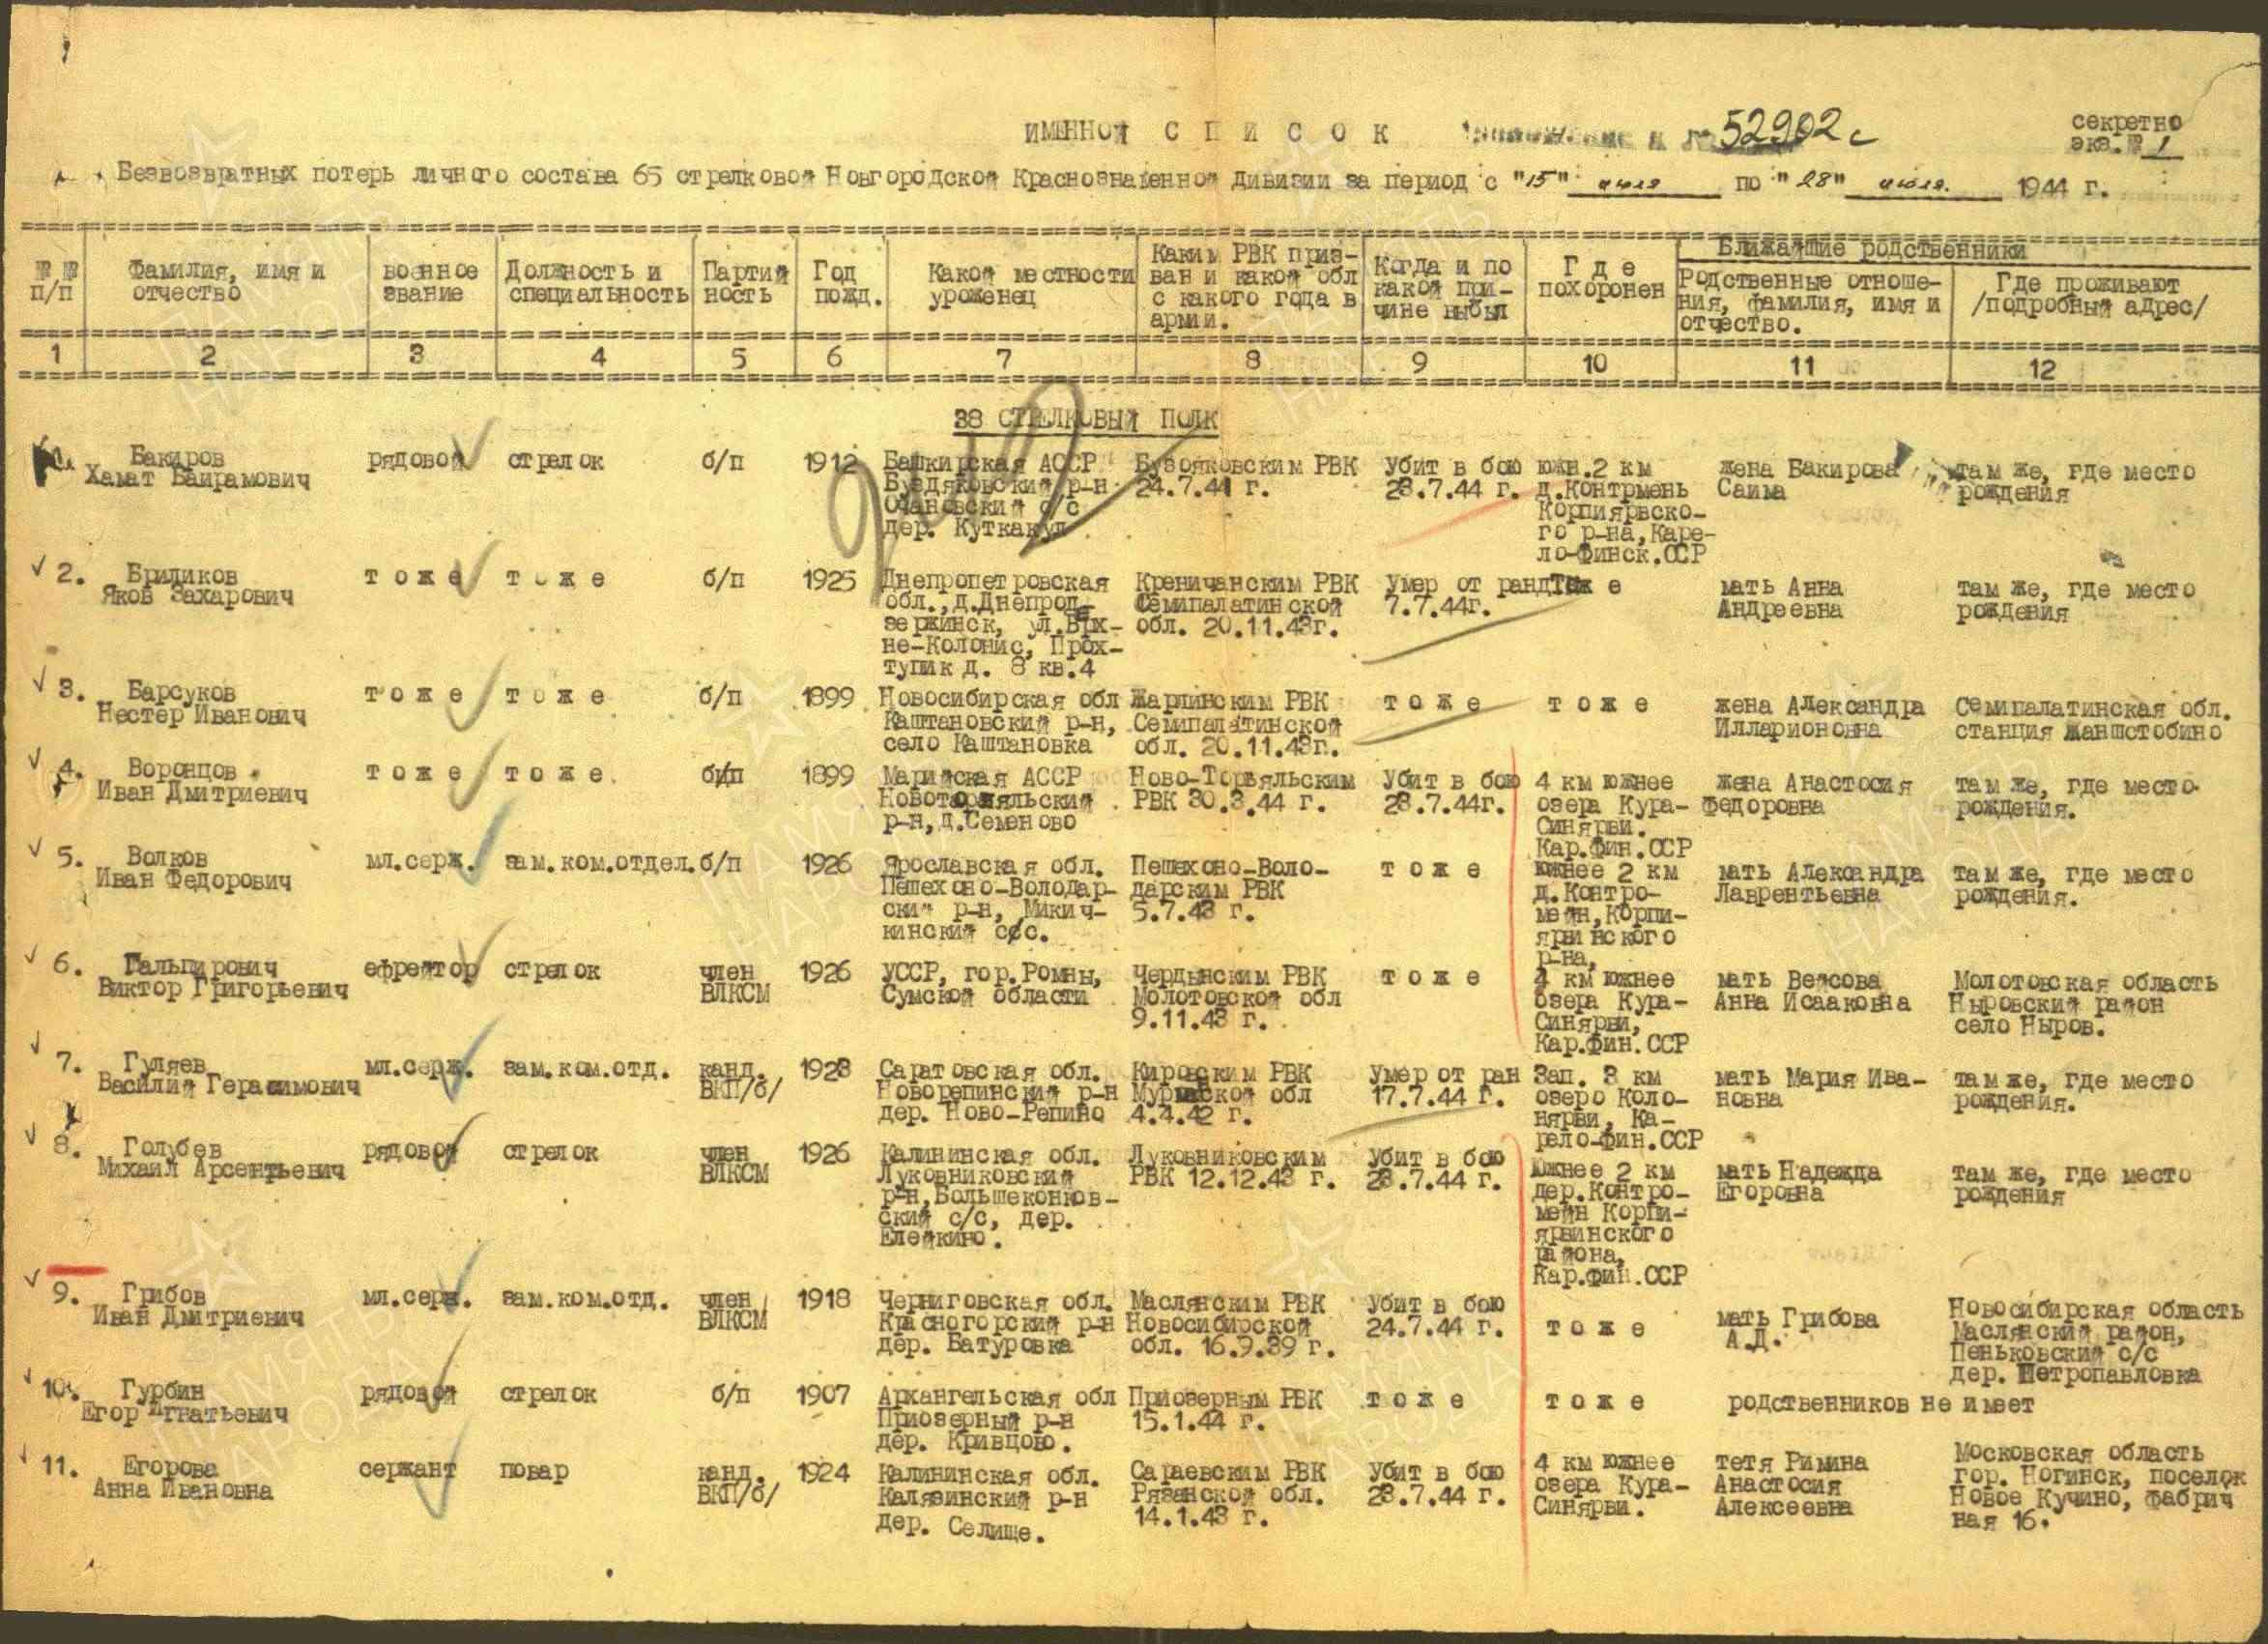 ИМЕННОЙ С П И С О К
52902с
секретно
экз.№ 1
Безвозвратных потерь личного состава 65 стрелковой Новгородской Краснознаменной дивизии за период с "15" июля по "28" июля. 1944 г.
№№ п/п
Фамилия, имя и отчество
военное звание
Должность и специальность
Партий ность
Год рожд.
Какой местности уроженец
Каким РВК приз-
ван и какой обл
с какого года в
армии.
Когда и по
какой при-
чине выбыл
Где
похоронен
Ближайшие родственники
Родственные отноше-
ния, фамилия, имя и
отчество.
Где проживают
/подробный адрес/
1 2 3 4 5 6 7 8 9 10 11 12
38 СТРЕЛКОВЫЙ ПОЛК
Бакиров
Хамат Баирамович
рядовой
стрелок
б/п
1912
Башкирская АССР
Буздяковский р-н
Очановский с/с
дер. Куткакул
Бузояковским РВК
24.7.41 г.
Убит в бою
23.7.44 г.
южн.2 км
д.Контрмень
Корпиярвско-
го р-на,Каре-
ло-Финск.ССР
жена Бакирова
Саима
там же, где место
рождения
2. Бридиков
Яков Захарович
т о ж е
т о ж е
б/п
1925
Днепропетровская
обл.,д.Днепрод-
зержинск, ул.Врх-
не-Колонис, Прох-
тупик д. 8 кв.4
Креничанским РВК
Семипалатинской
обл. 20.11.43г.
Умер от ран
7.7.44г.
Тож е
мать Анна
Андреевна
там же, где место
рождения
3. Барсуков
Нестер Иванович
т о ж е
т о ж е
б/п
1899
Новосибирская обл
Каштановский р-н,
село Каштановка
Жарминским РВК
Семипалатинской
обл. 20.11.43г.
т о ж е
т о ж е
жена Александра
Илларионовна
Семипалатинская обл.
станция Жаншстобино
4. Воронцов
Иван Дмитриевич
т о ж е
т о ж е
б/п
1899
Марийская АССР
Новоторяльский
р-н,д.Семеново
Ново-Торьяльским
РВК 30.3.44 г.
Убит в бою
23.7.44г.
4 км южнее
озера Кура-
Синярви.
Кар.Фин.ССР
жена Анастосия
Федоровна
там же, где место
рождения.
5. Волков
Иван Федорович
мл.серж.
зам.ком.отдел.
б/п
1926
Ярославская обл.
Пешехоно-Володар-
ский р-н, Микич-
кинский с/с.
Пешехоно-Воло-
дарским РВК
5.7.43 г.
т о ж е
южнее 2 км
д.Контро-
мейн,Корпи-
ярвинского
р-на,
мать Александра
Лаврентьевна
там же, где место
рождения.
6. Гальпирович
Виктор Григорьевич
ефрейтор
стрелок
член
ВЛКСМ
1926
УССР, гор.Ромны,
Сумской области
Чердынским РВК
Молотовской обл
9.11.43 г.
т о ж е
4 км южнее
озера Кура-
Синярви,
Кар.фин.ССР
мать Веясова
Анна Исааковна
Молотовская область
Ныровский район
село Ныров.
7. Гуляев
Василий Герасимович
мл.серж.
зам.ком.отд.
канд.
ВКП/б/
1923
Саратовская обл.
Новорепинский р-н
дер. Ново-Репино
Кировским РВК
Мурмнской обл
4.4.42 г.
Умер от ран
17.7.44 г.
Зап. 3 км
озеро Коло-
нярви, Ка-
рело-фин.ССР
мать Мария Ива-
новна
там же, где место
рождения.
8. Голубев
Михаил Арсентьевич
рядовой
стрелок
член
ВЛКСМ
1926
Калининская обл.
Луковниковский
р-н,Большеконков-
ский с/с, дер.
Елейкино.
Луковниковским
РВК 12.12.43 г.
Убит в бою
23.7.44 г.
Южнее 2 км
дер.Контро-
мейн Корпи-
ярвинского
района,
Кар.фин.ССР
мать Надежда
Егоровна
там же, где место
рождения
9. Грибов
Иван Дмитриевич
мл.серж.
зам.ком.отд.
член
ВЛКСМ
1918
Черниговская обл.
Красногорский р-н
дер. Батуровка
Маслянским РВК
Новосибирской
обл. 16.9.39 г.
Убит в бою
24.7.44 г.
т о ж е
мать Грибова
А.Д.
Новосибирская область
Маслянский район,
Пеньковский с/с
дер. Петропавловка
10. Гурбин
Егор Игнатьевич
рядовой
стрелок
б/п
1907
Архангельская обл
Приозерный р-н
дер. Кривцово.
Приозерным РВК
15.1.44 г.
т о ж е
т о ж е
родственников не имеет
11. Егорова
Анна Ивановна
сержант
повар
канд.
ВКП/б/
1924
Калининская обл.
Калязинский р-н
дер. Селище.
Сараевским РВК
Рязанской обл.
14.1.43 г.
Убит в бою
23.7.44 г.
4 км южнее
озера Кура-
Синярви.
тетя Римина
Анастосия
Алексеевна
Московская область
гор. Ногинск, поселок
Новое Кучино, фабрич
ная 16.